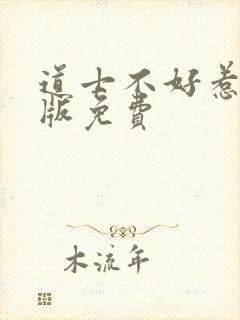 道士不好惹
版免费
木流年